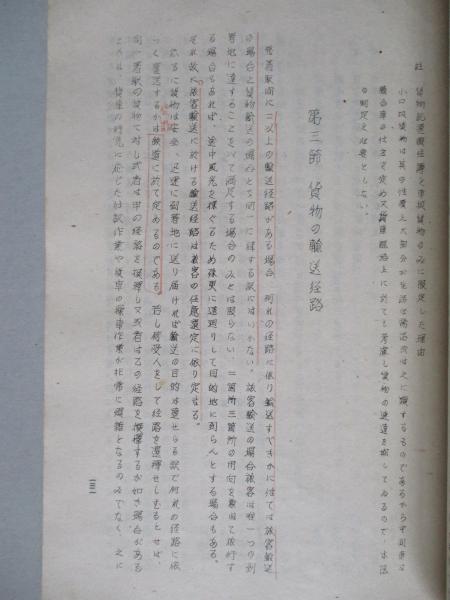 註 貨物記票順経路を車扱貨物のみに限定した理由
小口扱貨物は其の性質上大部分が生活必需品次は之に類するものであるから
の制定を必要としない。
第三節 貨物の輸送経路
発着駅間に二以上の輸送経路がある場合、何れの経路に依り輸送すべきかに就ては旅客輸送
の場合と貨物輸送の場合とを同一に律する訳にはいかない。旅客輸送の場合旅客は唯一つの到
着地に達することを以て満足する場合のみとは限らない、二箇所三箇所の用向を兼ねて旅行す
る場合もあれば、途中風光を探ぐるため殊更に迂廻りして目的地に到らんとする場合もある。
それ故に旅客輸送に於ける輸送経路は旅客の任意選定に依り定まる。
然るに貨物は安全、迅速に到着地に送り届ければ輸送の目的は達せらる訳で何れの経路に依
つて運送するかは鉄道に於て定めるのである。若し荷受人をして経路を選択せしむるとせば、
同一着駅の貨物に対し或者は甲の経路を選択し又或者は乙の経路を選択するが如き場合がある
これが、貨車の行先に応じた仕訳作業や貨車の操車作業が非常に煩雑となるのみでなく、之に